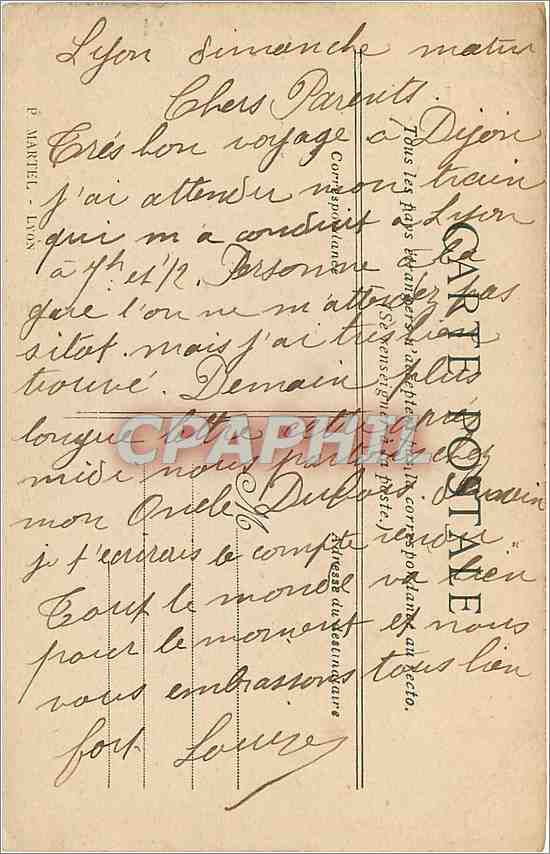 Lyon dimanche matin
Chers Parents.
Très bon voyage à Dijon
j'ai attendu mon train
qui m'a conduit à Lyon
à 7h et 1/2. Personne la
gare l'on ne m'attendez pas
sitot. mais j'ai très bien
trouvé. Demain plus
longue lettre cett après
midi nous partons chez
mon Oncle Dubois. demain
je t'ecrirais le compte rendu
Tout le monde va bien
pour le moment et nous
vous embrassons tous bien
fort Louise
P. MARTEL - LYON
CARTE POSTALE
Tous les pays étrangers n'acceptent pas la correspondance au recto.
(Se renseigner à la poste.)
Correspondance
Adresse du destinataire
M
CPAPHIL